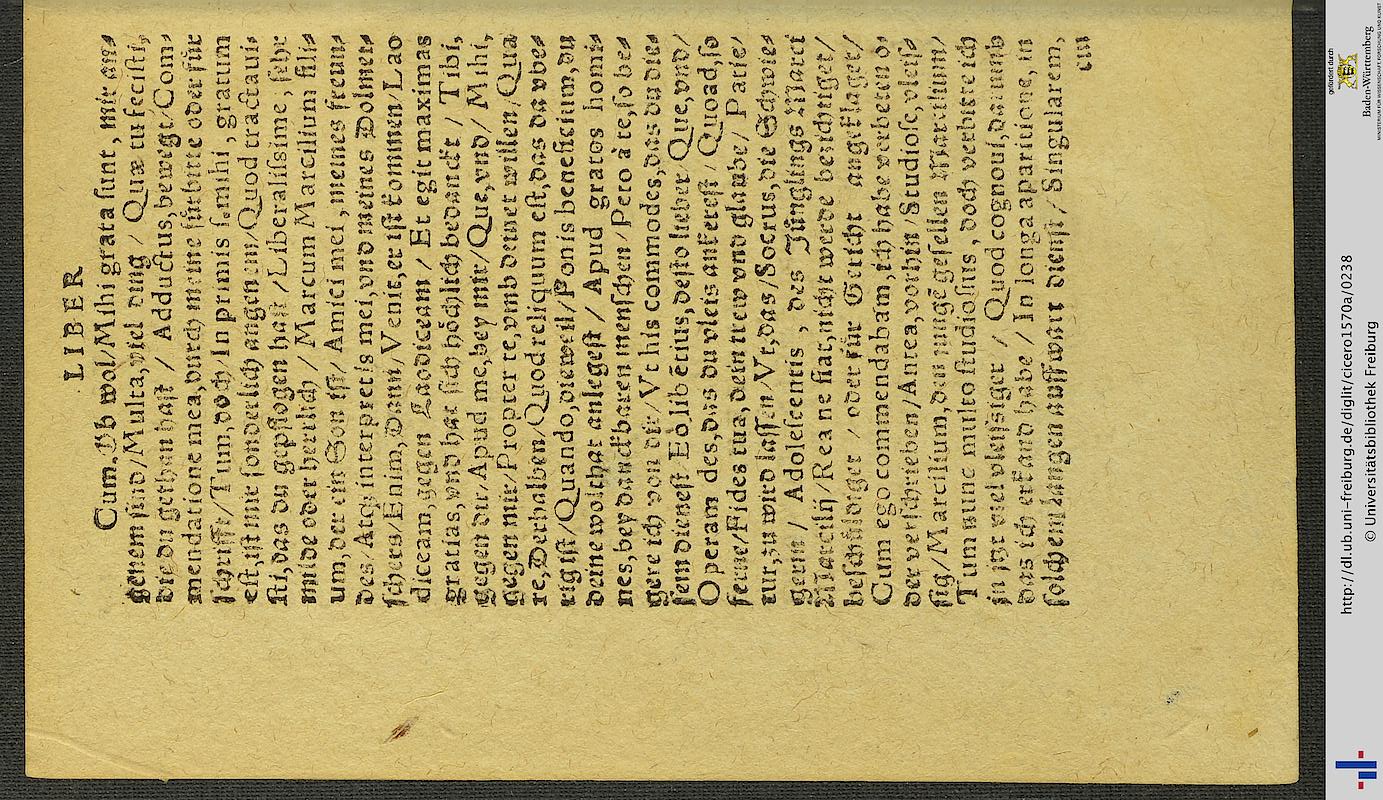 LIBER
Cum. Ob wol/Mihi grata sunt, mir an⸗
genem sind/Multa, viel ding / Quæ tu fecisti,
die du gethan hast / Adductus, bewegt/Com⸗
mendatione mea, durch meine fürbitte oder für
schrifft/Tum, doch In primis ſ. mihi, gratum
est, ist mir sonderlich angenem/Quod tractaui⸗
sti, das du gepflogen hast / Liberalissime, sehr
milde oder herrlich / Marcum Marcilium fili⸗
um, der ein Son ist/ Amici mei, meines freun⸗
des/Atq; interpretis mei, vnd meines Dolmet⸗
schers/Enim, Dann/Venit, er ist kommen/Lao
diceam, gegen Laodiceam / Et egit maximas
gratias, vnd hat sich höchlich bedanckt / Tibi,
gegen dir/Apud me, bey mir/Que, vnd/ Mihi,
gegen mir/Propter te, vmb deinet willen/Qua
re, Derhalben/Quod reliquum est, das da vbe⸗
rig ist/Quando, dieweil/Ponis beneficium, du
deine wolthat anlegest / Apud gratos homi⸗
nes, bey danckbaren menschen/Peto à te, so be⸗
gere ich von dir/Vt his commodes, das du die⸗
sem dienest Eò libētius, desto lieber Que, vnd
Operam des, das du vleis ankerest / Quoad, so
ferne/Fides tua, dein trew vnd glaube/ Patie⸗
tur, zu wird lassen/Vt, das/Socrus, die Schwie⸗
gerin / Adolescentis, des Jünglings Marci
Marcilij/Rea ne fiat, nicht werde bezichtiget/
beschüldiget / oder für Gericht angeklaget/
Cum ego commendabam, ich habe verbeten o⸗
der verschrieben/Antea, vorhin/Studiosè, vleis⸗
sig/Marcilium, den mitgesellen Marcilium/
Tum nunc multo studiosius, doch verbitte ich
jn itzt viel vleissiger / Quod cognoui, darumb
das ich erfand habe / In longa aparitione, in
solchem langen auffwart dienst/ Singularem,
cui
gefördert durch
Baden-Württemberg
MINISTERIUM FÜR WISSENSCHAFT, FORSCHUNG UND KUNST
http://dl.ub.uni-freiburg.de/diglit/cicero1570a/0238
© Universitätsbibliothek Freiburg